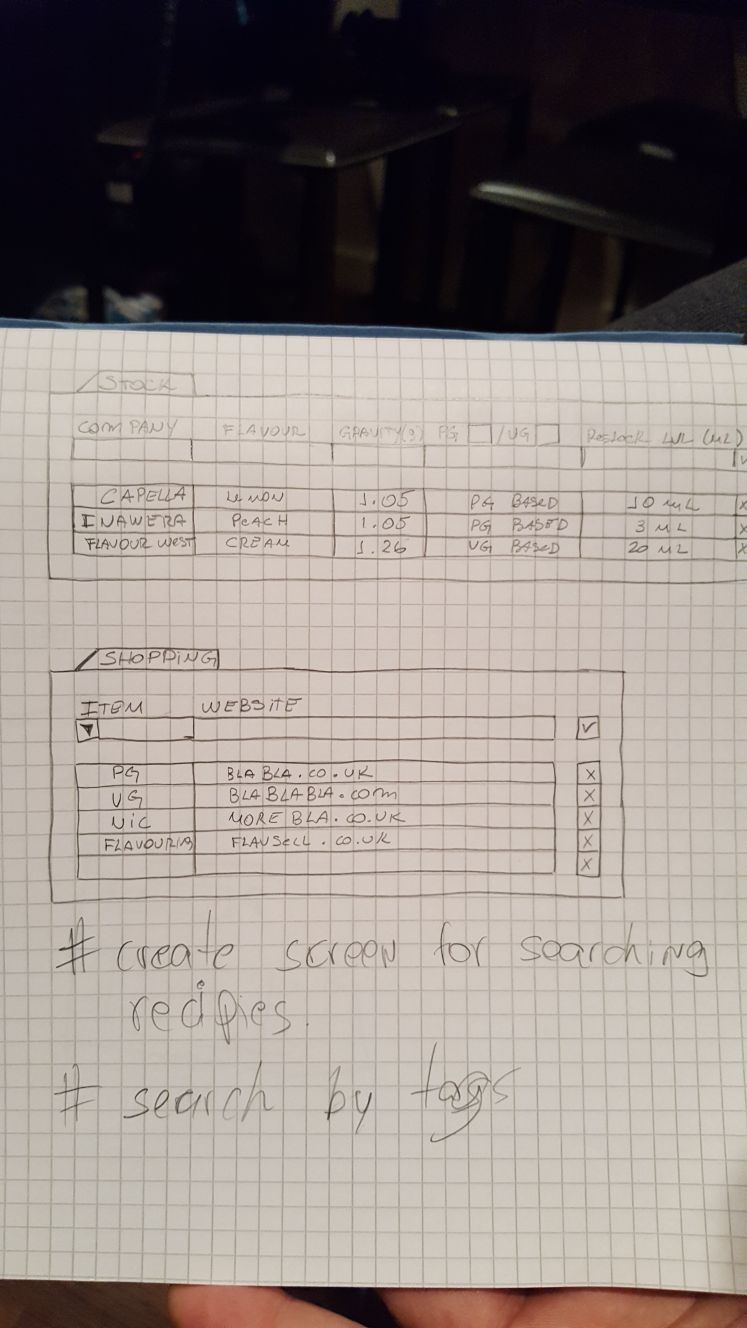 STOCK
COMPANY FLAVOUR GRAVITY(g) PG /VG RESTOCK LVL (ML)
CAPELLA LEMON 1.05 PG BASED 10 mL X
INAWERA PEACH 1.05 PG BASED 3 ML X
FLAVOUR WEST CREAM 1.26 VG BASED 20 ML X
SHOPPING
ITEM WEBSITE
▼ ✓
PG BLABLA.CO.UK X
VG BLABLABLA.com X
NIC MOREBLA.CO.UK X
FLAVOURING FLAVSELL.CO.UK X
X
# create screen for searching
recipies.
# search by tags